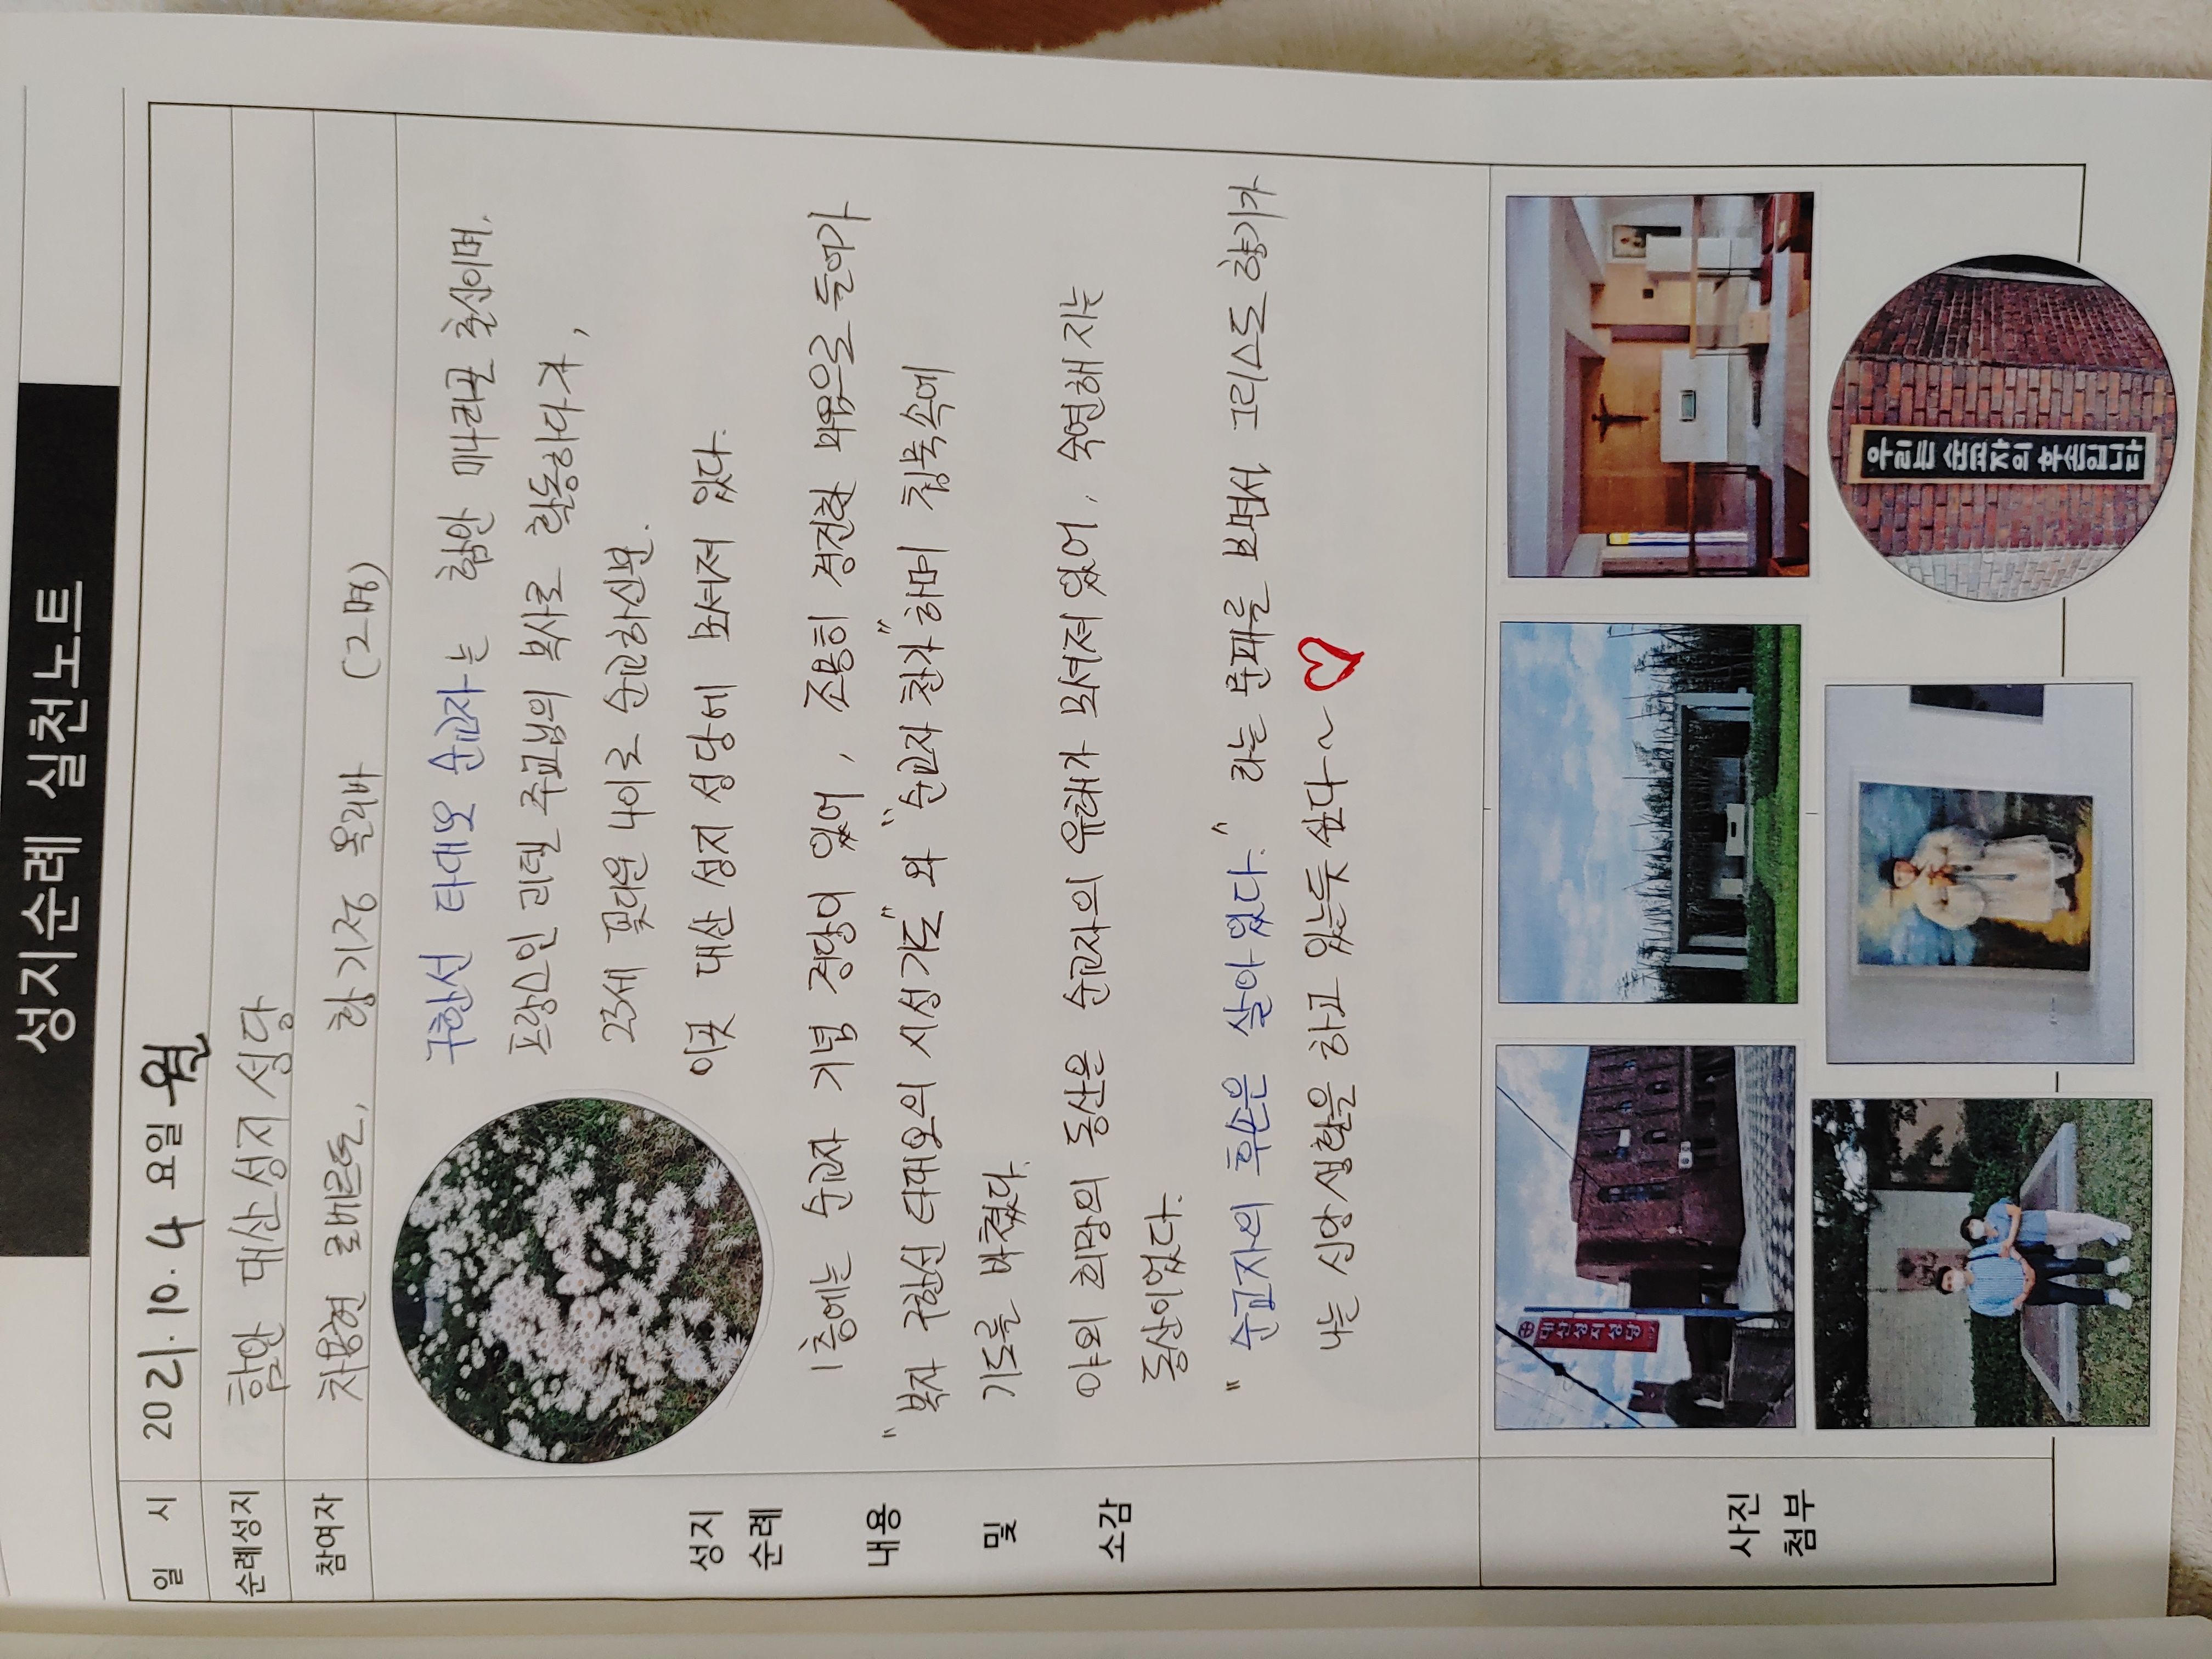 성지순례 실천노트
일 시 2021. 10. 4 요일 월
순례성지 함안 대산성지성당
참여자 차용현 로베르토, 황기정 올리바 (2명)
성지
순례
내용
및
소감
구한선 타대오 순교자는 함안 미나리골 출신이며,
프랑스인 리델 주교님의 복사로 활동하다가,
23세 꽃다운 나이로 순교하신분.
이곳 대산 성지 성당에 모셔져 있다.
1층에는 순교자 기념 경당이 있어, 조용히 경건한 마음으로 들어가
"복자 구한선 타대오의 시성기도"와 "순교자 찬가"하며 침묵속에
기도를 바쳤다.
야외 희망의 동산은 순교자의 유해가 모셔져 있어, 숙연해 지는
동산이었다.
"순교자의 후손은 살아있다." 라는 문패를 보면서, 그리스도 향기가
나는 신앙생활을 하고 있는듯 싶다~ ♡
사진
첨부
대산성지성당
우리는 순교자의 후손입니다